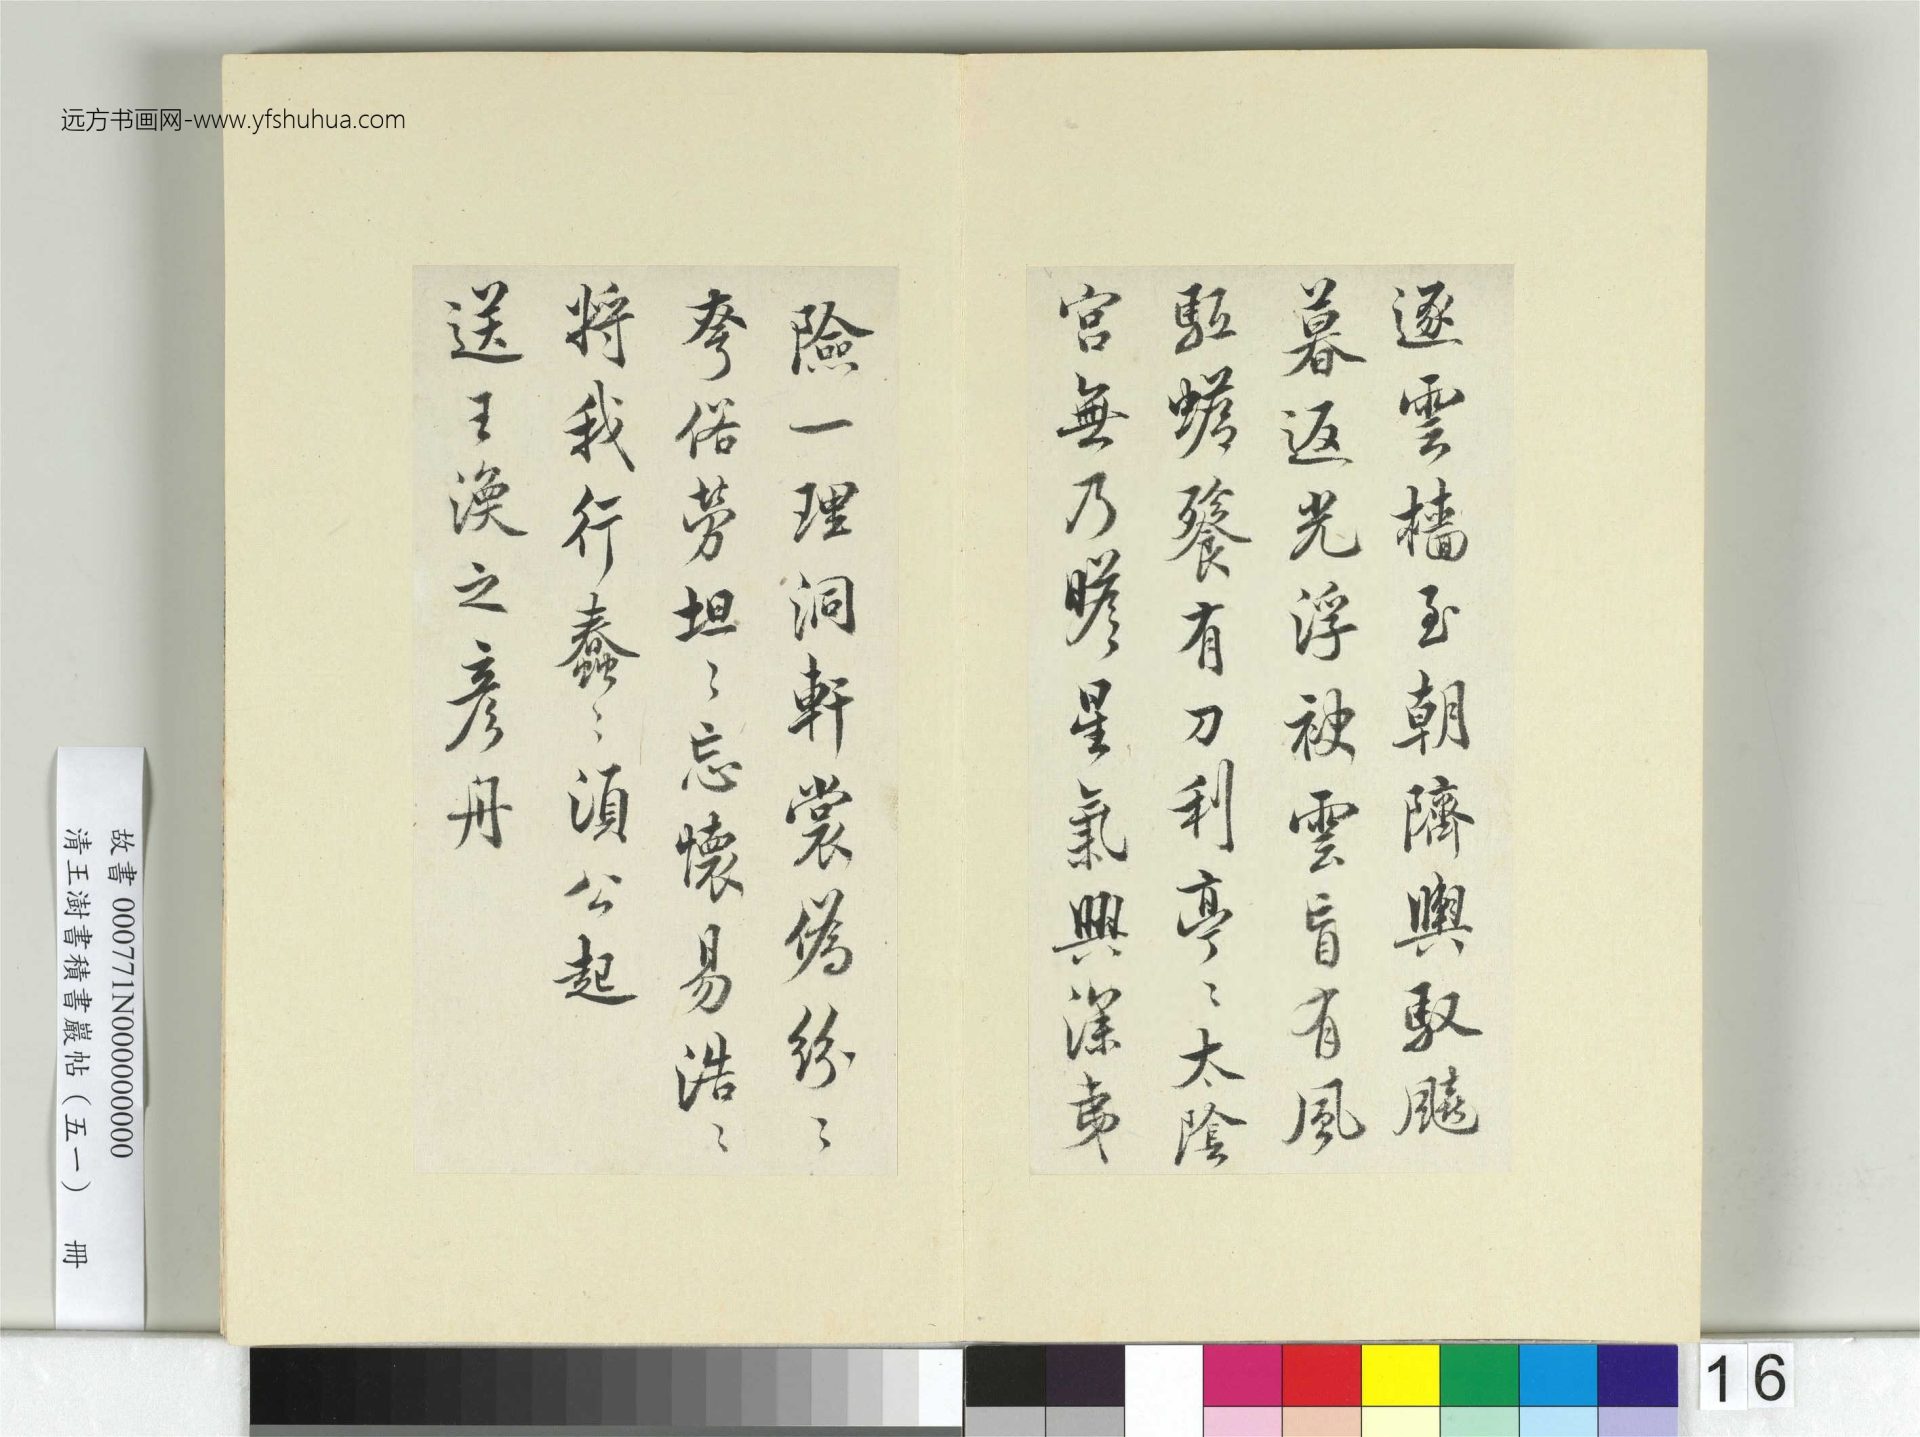 远方书画网-www.yfshuhua.com
逐雲檣至朝隮輿馭飈
暮返光浮袂雲盲有風
駈蟾餮有刀利亭〻太陰
宮無乃瞻星氣興深夷
險一理洞軒裳偽紛〻
夸俗勞坦〻忘懷易浩〻
將我行蠢〻須公起
送王渙之彥舟
故書 000771N000000000
清王澍書積書巖帖（五一） 冊
16